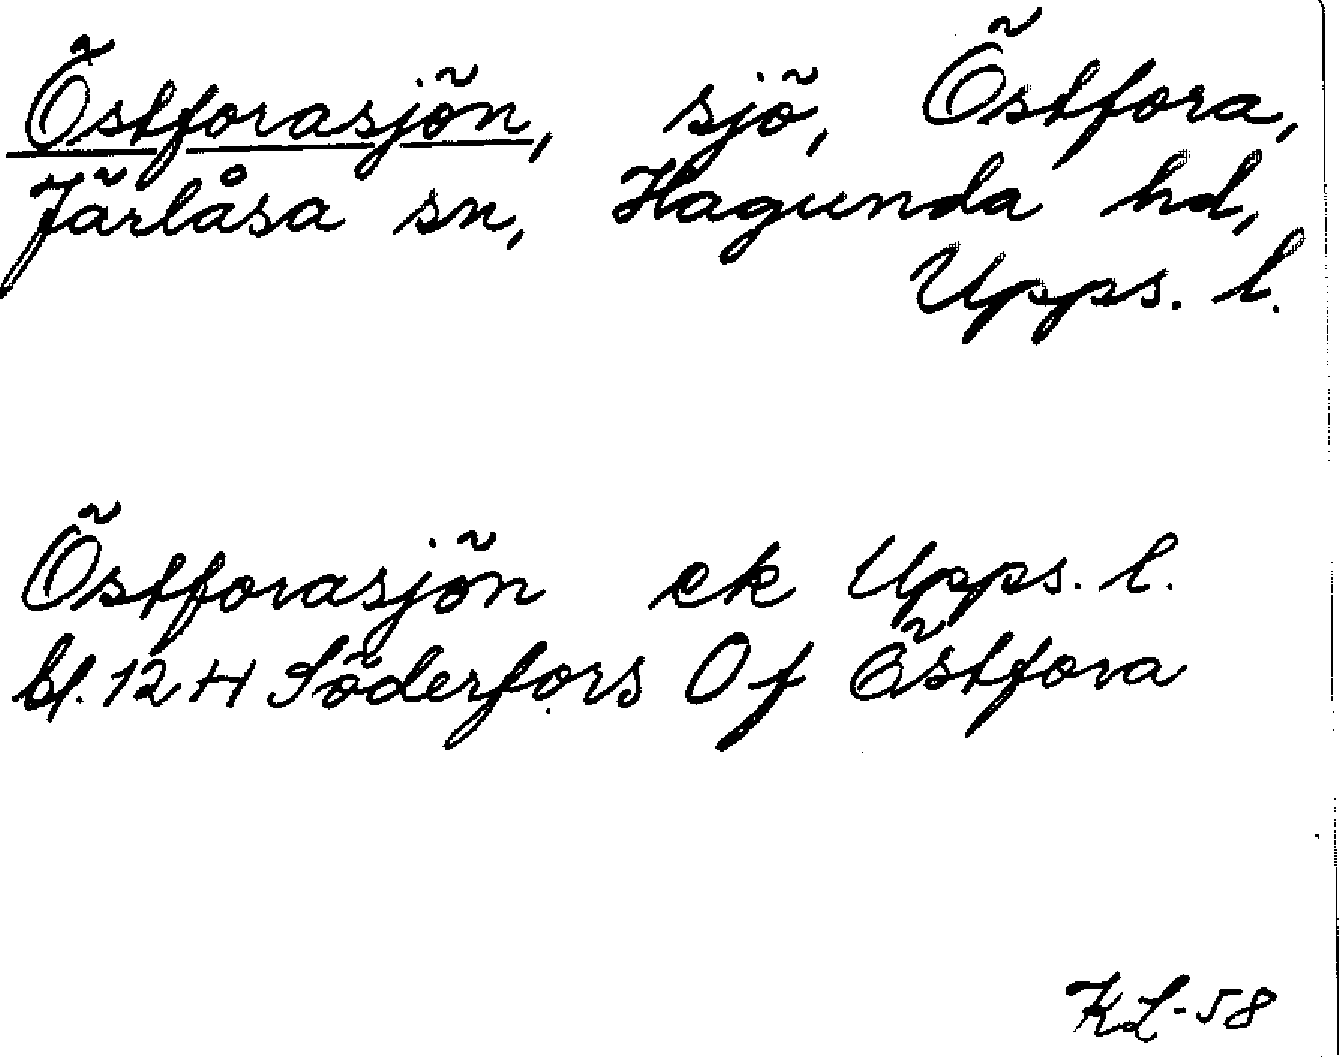 Östforasjön, sjö, Östfora,
Järlåsa sn, Hagunda hd,
Upps. l.
Östforasjön ek Upps. l.
bl. 12 H Söderfors 0 f Östfora
KL-58